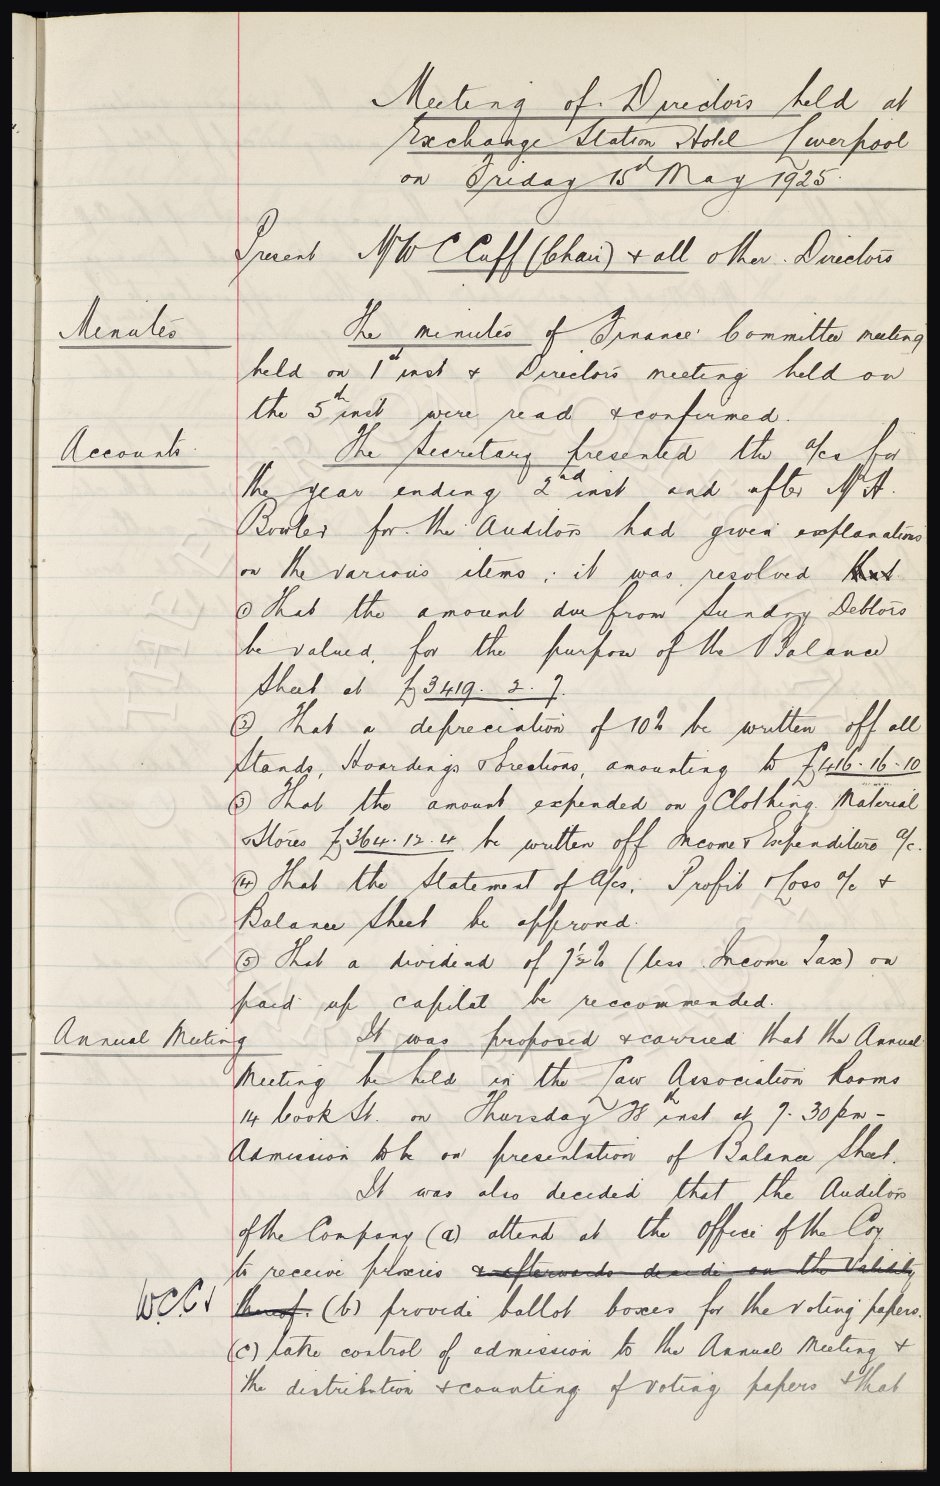 Meeting of Directors held at
Exchange Station Hotel Liverpool
on Friday 15th May 1925.
Present Mr W C Cuff (Chair) & all other Directors
Minutes
The minutes of Finance Committee meeting
held on 1st inst & Directors meeting held on
the 5th inst were read & confirmed.
Accounts
The Secretary presented the a/cs for
the year ending 2nd inst and after Mr A.
Bowler for the Auditors had given explanations
on the various items; it was resolved that
① That the amount due from Sundry Debtors
be valued, for the purpose of the Balance
Sheet at £3419. 2. 7.
② That a depreciation of 10% be written off all
Stands, Hoardings & Erections, amounting to £416. 16. 10
③ That the amount expended on Clothing Material
& Stores £364. 12. 4 be written off Income & Expenditure a/c.
④ That the Statement of A/cs, Profit & Loss a/c &
Balance Sheet be approved.
⑤ That a dividend of 7½% (less Income Tax) on
paid up capital be reccommended.
Annual Meeting
It was proposed & carried that the Annual
Meeting be held in the Law Association Rooms
14 Cook St. on Thursday 28th inst at 7.30pm –
Admission to be on presentation of Balance Sheet.
It was also decided that the Auditors
of the Company (a) attend at the Office of the Coy
to receive proxies & afterwards decide on the Validity
W.C.C.
thereof. (b) provide ballot boxes for the voting papers.
(c) take control of admission to the Annual Meeting &
the distribution & counting of voting papers & that